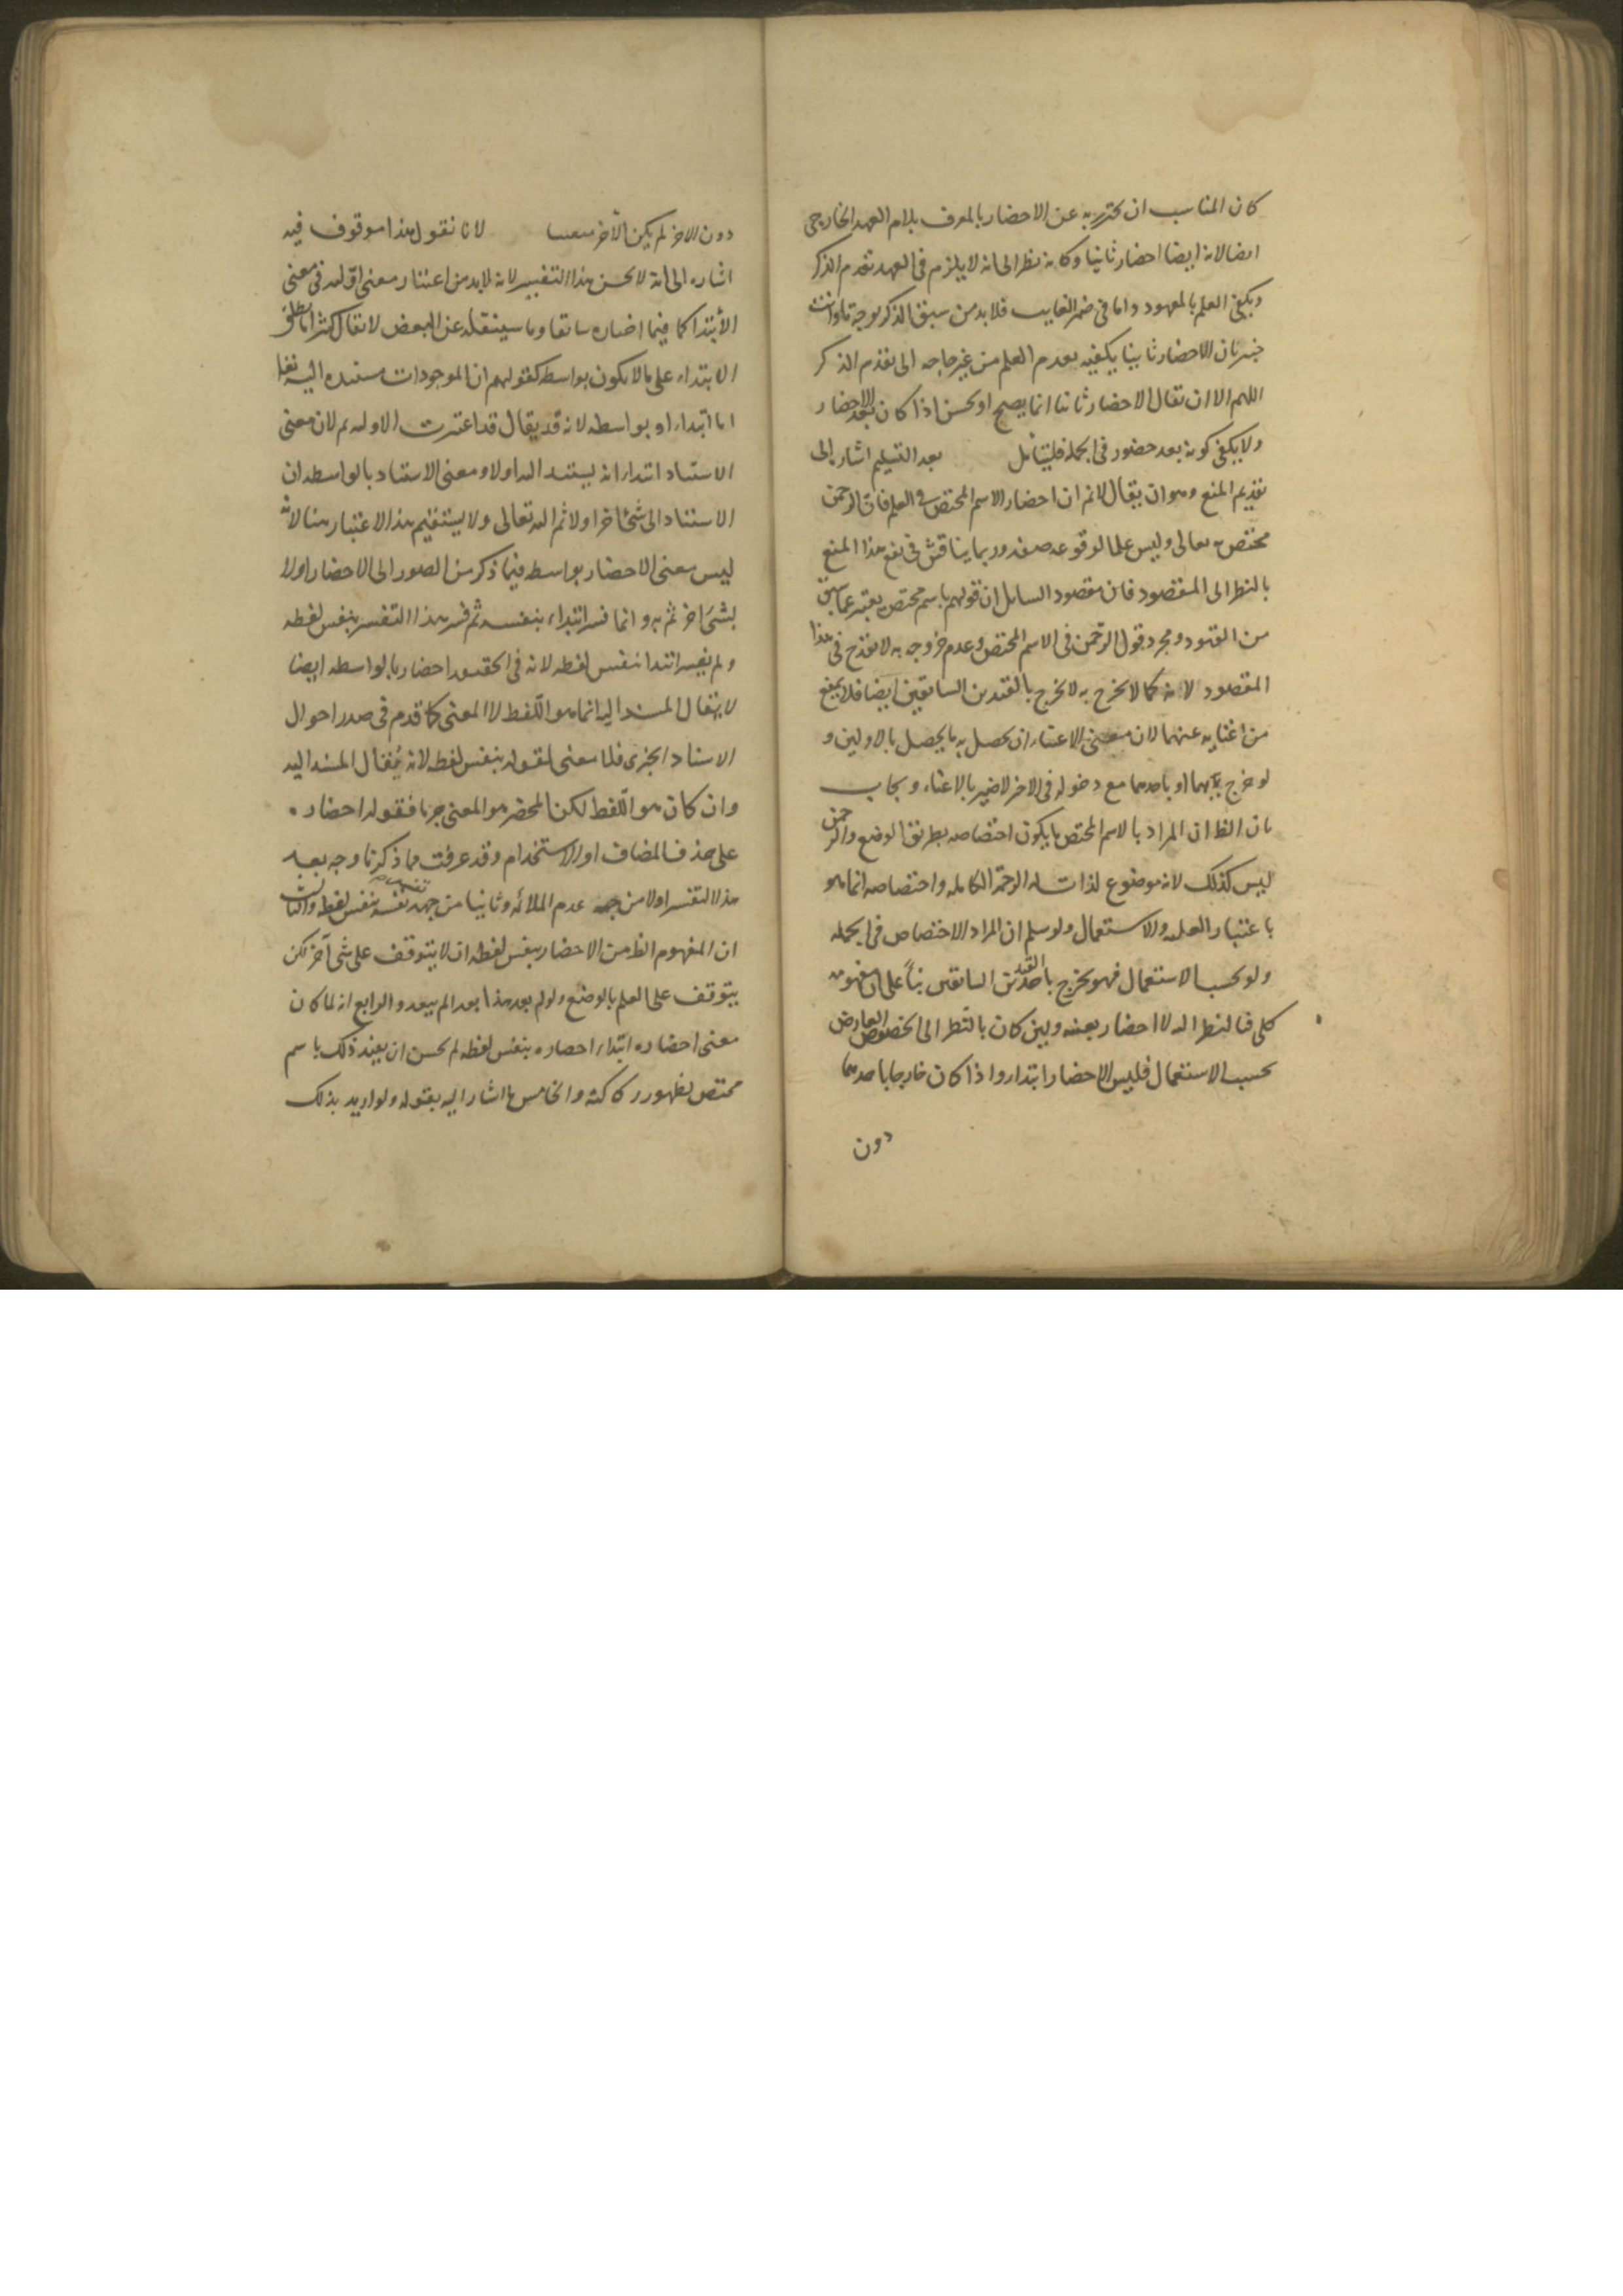 كان المناسب ان يحترز به عن الاحضار بالمعرف بلام العهد الخارجى
ايضا لانه ايضا احضار ثانيا وكانه نظر الى انه لا يلزم فى العهد تقدم الذكر
ويكفى العلم بالمعهود واما فى ضمير الغايب فلا بد من سبق الذكر بوجه ما وانت
خبير بان الاحضار ثانيا يكفيه تقدم العلم من غير حاجه الى تقدم الذكر
اللهم الا ان يقال الاحضار ثانيا انما يصح او يحسن اذا كان بعد الاحضار
ولا يكفى كونه بعد حضور فى الجمله فليتامل بعد التسليم اشار الى
تقديم المنع وهو ان يقال لا نم ان احضار الاسم المختص فى العلم فان الرحمن
مختص به تعالى وليس علما لوقوعه صفه وربما يناقش فى نفع هذا المنع
بالنظر الى المقصود فان مقصود السايل ان قولهم باسم مختص به يغنى عما سبق
من القيود ومجرد دخول الرحمن فى الاسم المختص وعدم خروجه به لا يقدح فى هذا
المقصود لانه كما لا يخرج به لا يخرج بالقيدين السابقين ايضا فلا يمنع
من اغنايه عنهما لان معنى الاغناء ان يحصل به ما يحصل بالاولين و
لو خرج بهما او باحدهما مع دخوله فى الاخر لاضير بالاغناء ويجاب
بان الظ ان المراد بالاسم المختص ما يكون اختصاصه بطريق الوضع والرحمن
ليس كذلك لانه موضوع لذات له الرحمة الكامله واختصاصه انما هو
باعتبار الغلبه والاستعمال ولو سلم ان المراد الاختصاص فى الجمله
ولو بحسب الاستعمال فهو يخرج باحد القيدين السابقين بناً على ان مفهومه
كلى فبالنظر اليه لا احضار بعينه ولين كان بالنظر الى الخصوص العارض
بحسب الاستعمال فليس الاحضار ابتداء واذا كان خارجا باحدهما
دون
دون الاخر لم يكن الآخر مغنيا لانا نقول هذا موقوف فيه
اشاره الى انه لا يحسن هذا التفسير لانه لا بد من اعتبار معنى اوليه فى معنى
الأبتدا كما فيما اختاره سابقا وما سينقله عن البعض لا يقال كثيرا ما يطلق
الابتداء على ما لا يكون بواسطه كقولهم ان الموجودات مستنده اليه تعا
اما ابتداء او بواسطه لانه قد يقال قد اعتبرت الاوليه ثم لان معنى
الاستناد ابتداء انه يستند اليه اولا ومعنى الاستناد بالواسطه ان
الاستناد الى شئ اخر اولا ثم اليه تعالى ولا يستقيم هذا الاعتبار هنا لانه
ليس معنى الاحضار بواسطه فيما ذكر من الصور الى الاحضار اولا
بشئ اخر ثم به وانما فسر ابتداء بنفسه ثم فسر هذا التفسير بنفس لفظه
ولم يفسر ابتدا بنفس لفظه لانه فى الحقيقه احضار بالواسطه ايضا
لا يقال المسند اليه انما هو اللفظ لا المعنى كما قدم فى صدر احوال
الاسناد الخبرى فلا معنى لقوله بنفس لفظه لانه يُقال المسند اليه
وان كان هو اللفظ لكن المحضر هو المعنى جزما فقوله احضاره
على حذف المضاف او الاستخدام وقد عرفت مما ذكرنا وجه بعد
هذا التفسير اولا من جهه عدم الملائمه وثانيا من جهه تفسيره بنفس لفظه والثالث
ان المفهوم الظ من الاحضار بنفس لفظه ان لا يتوقف على شئ آخر لكن
يتوقف على العلم بالوضع ولو لم يعد هذا بعدا لم يبعد والرابع انه لما كان
معنى احضاره ابتداء احضاره بنفس لفظه لم يحسن ان يقيد ذلك باسم
مختص لظهور ركاكته والخامس ما اشار اليه بقوله ولو اريد بذلك